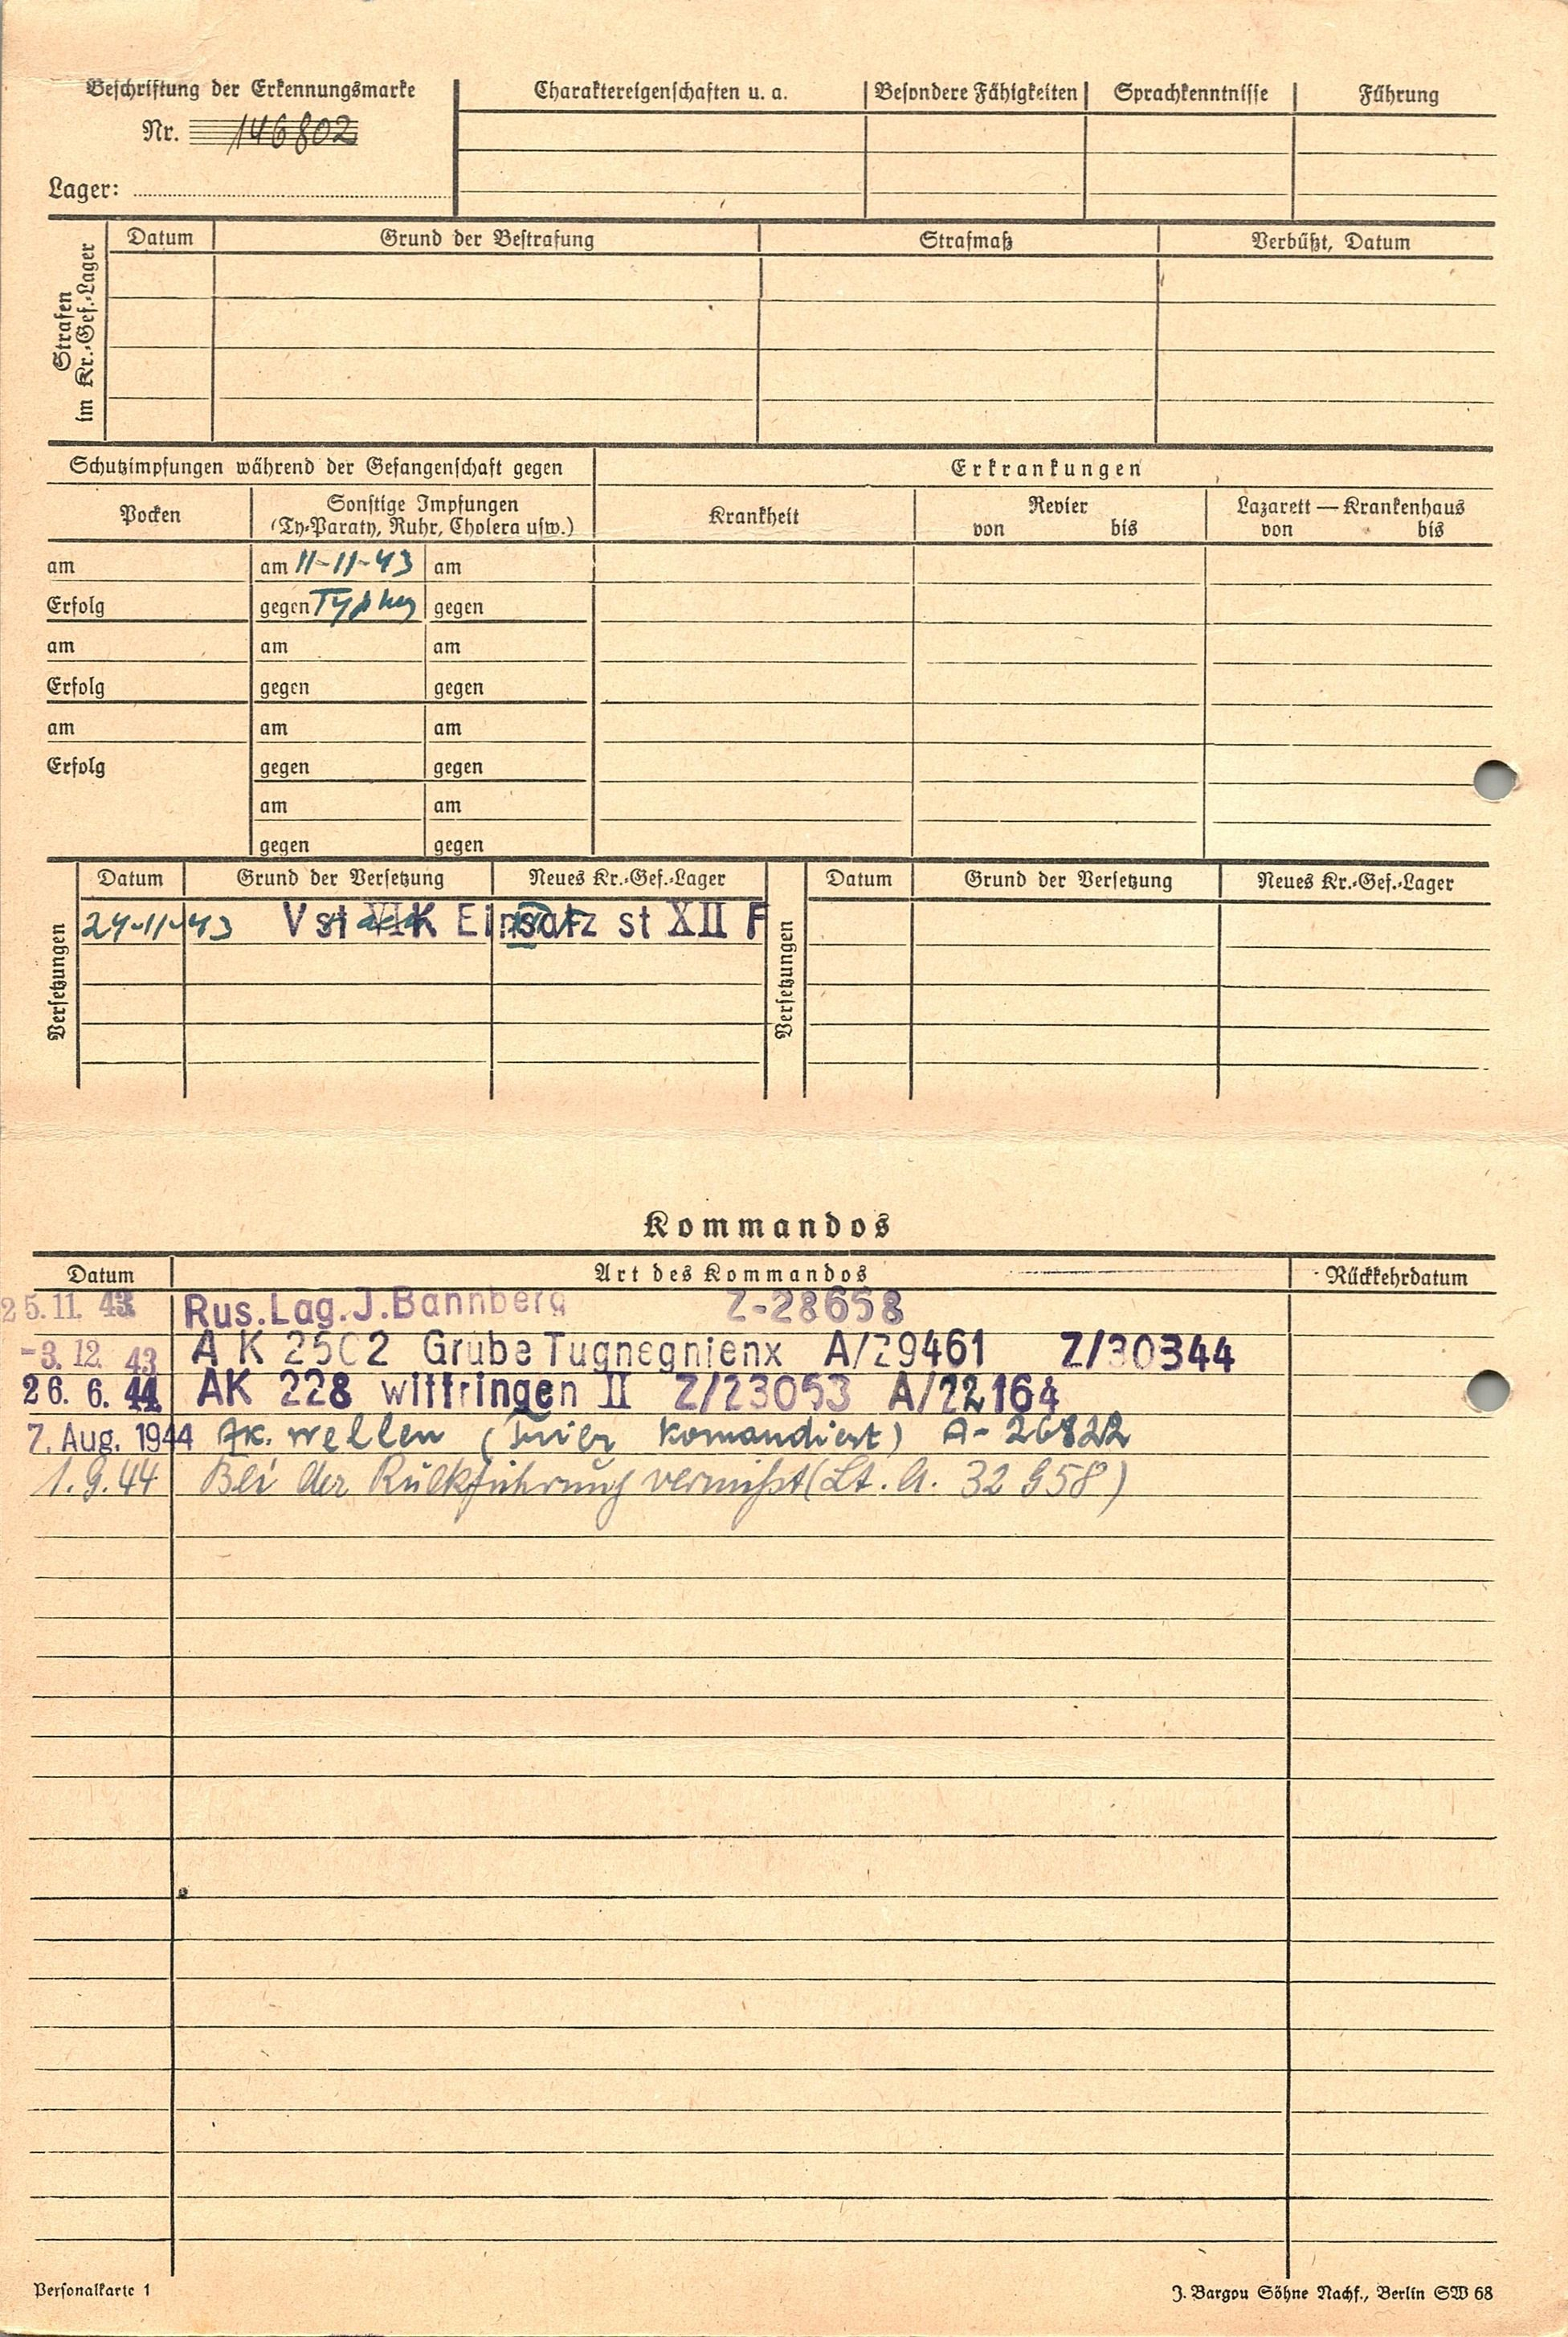 Beschriftung der Erkennungsmarke
Nr. 146802
Lager:
Charaktereigenschaften u. a.
Besondere Fähigkeiten
Sprachkenntnisse
Führung
Strafen
im Kr.-Gef.-Lager
Datum
Grund der Bestrafung
Strafmaß
Verbüßt, Datum
Schutzimpfungen während der Gefangenschaft gegen
Erkrankungen
Pocken
Sonstige Impfungen
(Ty-Paraty, Ruhr, Cholera usw.)
Krankheit
Revier
von bis
Lazarett — Krankenhaus
von bis
am
am 11-11-43
am
Erfolg
gegen Typhus
gegen
am
am
am
Erfolg
gegen
gegen
am
am
am
Erfolg
gegen
gegen
am
am
gegen
gegen
Versetzungen
Datum
Grund der Versetzung
Neues Kr.-Gef.-Lager
24-11-43 V st VI K Einsatz st XII F
Versetzungen
Datum
Grund der Versetzung
Neues Kr.-Gef.-Lager
Kommandos
Datum
Art des Kommandos
Rückkehrdatum
25.11. 43 Rus.Lag.J.Bannberg Z-28658
-3. 12. 43 A K 2502 Grube Tugnegnienx A/29461 Z/30344
26. 6. 44 AK 228 wittringen II Z/23053 A/22164
7. Aug. 1944 Ak. wellen (Trier Komandiert) A-26822
1.9.44 Bei der Rückführung vermißt (Lt. A. 32 958)
Personalkarte 1
J. Bargou Söhne Nachf., Berlin SW 68